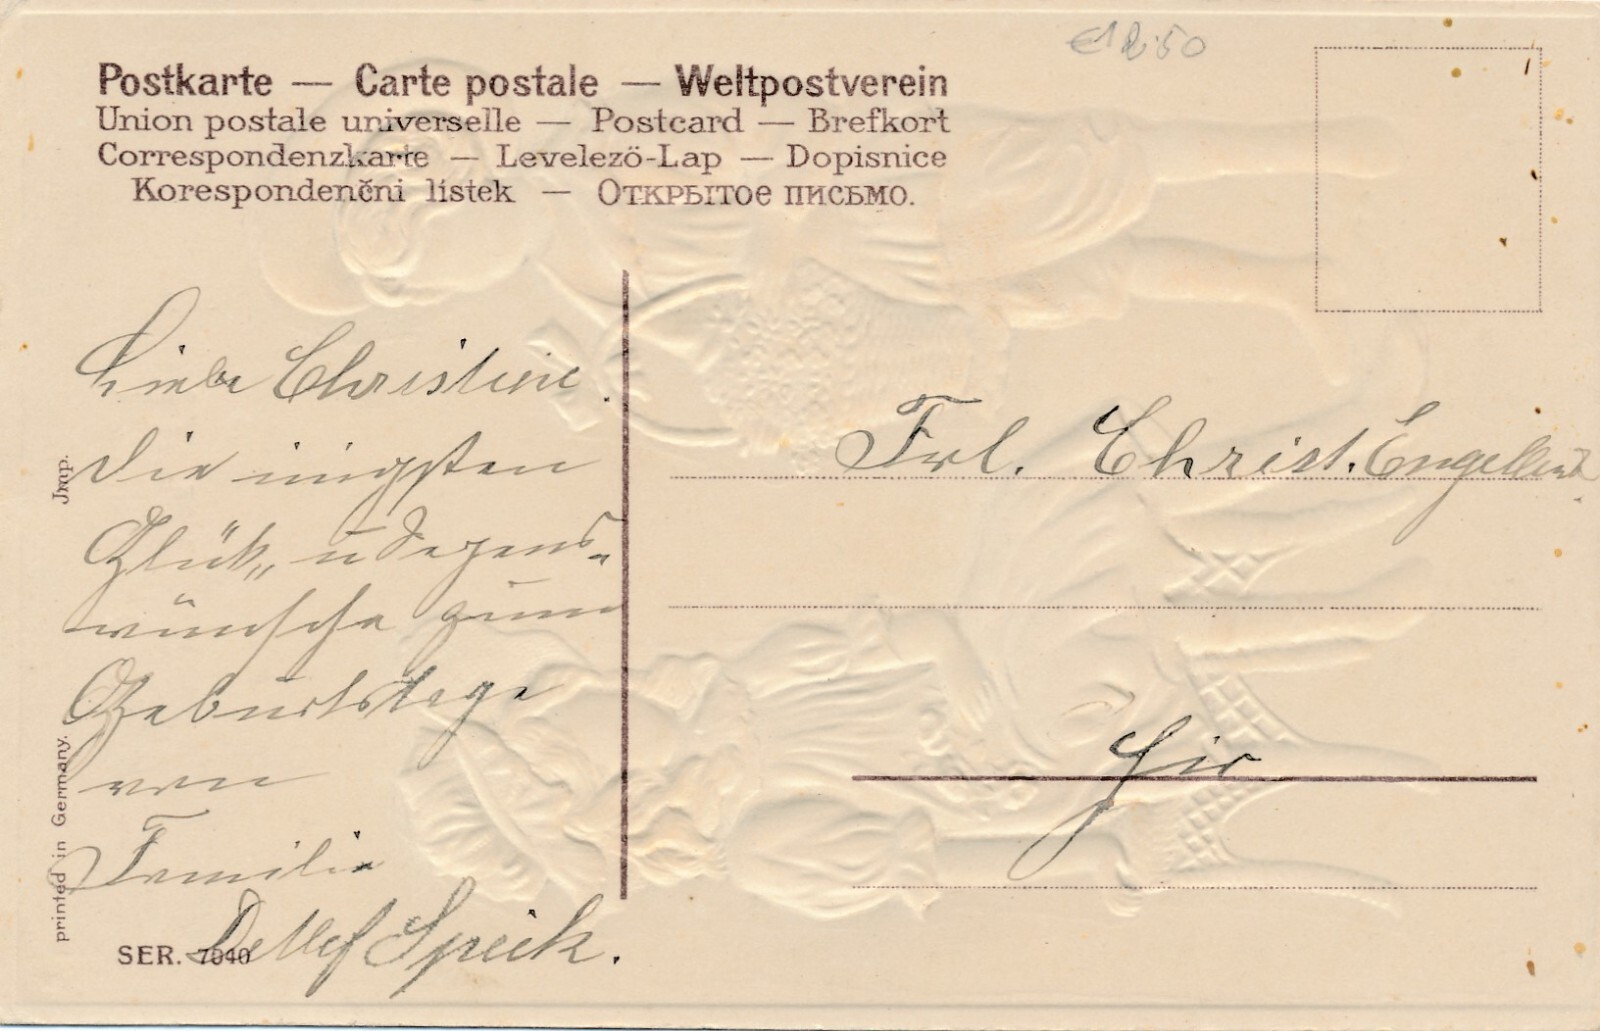 €12.50
Postkarte — Carte postale — Weltpostverein
Union postale universelle — Postcard — Brefkort
Correspondenzkarte — Levelezö-Lap — Dopisnice
Korespondenčni lístek — Открытое письмо.
Liebe Christine.
die innigsten
Glück„ u Segens-
wünsche zum
Geburtstage
von
Familie
Detlef Speck.
Frl. Christ.
Hir
Jmp.
printed in Germany.
SER. 7040